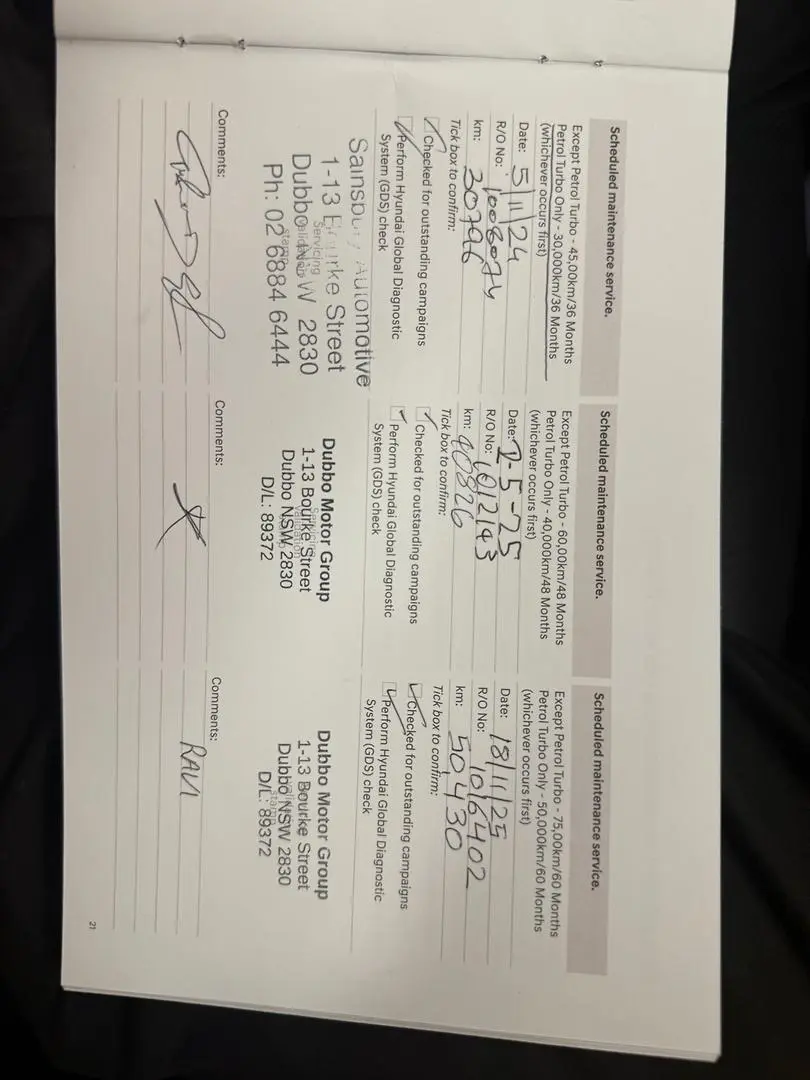 Scheduled maintenance service.
Except Petrol Turbo - 45,00km/36 Months
Petrol Turbo Only - 30,000km/36 Months
(whichever occurs first)
Date: 5/11/24
R/O No: 1008074
km: 30796
Tick box to confirm:
Checked for outstanding campaigns
Perform Hyundai Global Diagnostic
System (GDS) check
Automotive
1-13 Street
Dubbo NSW 2830
Ph: 02 6884 6444
Servicing
Comments:
Scheduled maintenance service.
Except Petrol Turbo - 60,00km/48 Months
Petrol Turbo Only - 40,000km/48 Months
(whichever occurs first)
Date: 2-5-25
R/O No: 1012143
km: 40826
Tick box to confirm:
Checked for outstanding campaigns
Perform Hyundai Global Diagnostic
System (GDS) check
Dubbo Motor Group
1-13 Bourke Street
Dubbo NSW 2830
D/L: 89372
Servicing
validation
Comments:
Scheduled maintenance service.
Except Petrol Turbo - 75,00km/60 Months
Petrol Turbo Only - 50,000km/60 Months
(whichever occurs first)
Date: 18/11/25
R/O No: 1016402
km: 50,430
Tick box to confirm:
Checked for outstanding campaigns
Perform Hyundai Global Diagnostic
System (GDS) check
Dubbo Motor Group
1-13 Bourke Street
Dubbo NSW 2830
D/L: 89372
stamp
Comments:
RAVI
21